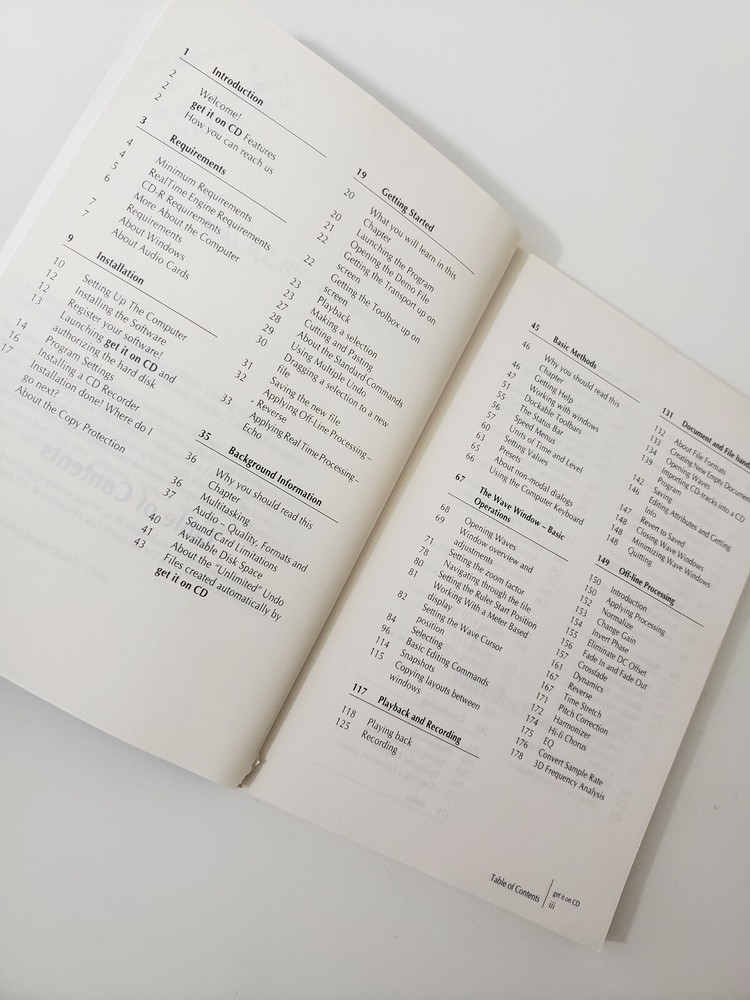 1 Introduction
2 Welcome!
2 get it on CD Features
2 How you can reach us
3 Requirements
4 Minimum Requirements
4 RealTime Engine Requirements
5 CD-R Requirements
6 More About the Computer
Requirements
7 About Windows
7 About Audio Cards
9 Installation
10 Setting Up The Computer
12 Installing the Software
12 Register your software!
13 Launching get it on CD and
authorizing the hard disk
14 Program Settings
16 Installing a CD Recorder
17 Installation done! Where do I
go next?
About the Copy Protection
19 Getting Started
20 What you will learn in this
Chapter
20 Launching the Program
21 Opening the Demo File
22 Getting the Transport up on
screen
22 Getting the Toolbox up on
screen
23 Playback
23 Making a selection
27 Cutting and Pasting
28 About the Standard Commands
29 Using Multiple Undo
30 Dragging a selection to a new
file
31 Saving the new file
32 Applying Off-Line Processing –
Reverse
33 Applying Real Time Processing –
Echo
35 Background Information
36 Why you should read this
Chapter
36 Multitasking
37 Audio – Quality, Formats and
Sound Card Limitations
40 Available Disk Space
41 About the "Unlimited" Undo
43 Files created automatically by
get it on CD
45 Basic Methods
46 Why you should read this
Chapter
46 Getting Help
47 Working with windows
51 Dockable Toolbars
55 The Status Bar
56 Speed Menus
57 Units of Time and Level
60 Setting Values
63 Presets
65 About non-modal dialogs
66 Using the Computer Keyboard
67 The Wave Window – Basic
Operations
68 Opening Waves
69 Window overview and
adjustments
71 Setting the zoom factor
78 Navigating through the file
80 Setting the Ruler Start Position
81 Working With a Meter Based
display
82 Setting the Wave Cursor
position
84 Selecting
96 Basic Editing Commands
114 Snapshots
115 Copying layouts between
windows
117 Playback and Recording
118 Playing back
125 Recording
131 Document and File hand
132 About File Formats
133 Creating New Empty Docum
134 Opening Waves
139 Importing CD-tracks into a CD
Program
142 Saving
146 Editing Attributes and Getting
Info
147 Revert to Saved
148 Closing Wave Windows
148 Minimizing Wave Windows
148 Quitting
149 Off-line Processing
150 Introduction
150 Applying Processing
152 Normalize
153 Change Gain
154 Invert Phase
155 Eliminate DC Offset
156 Fade in and Fade Out
157 Crossfade
161 Dynamics
167 Reverse
167 Time Stretch
171 Pitch Correction
172 Harmonizer
174 Hi-fi Chorus
175 EQ
176 Convert Sample Rate
178 3D Frequency Analysis
Table of Contents
get it on CD
iii